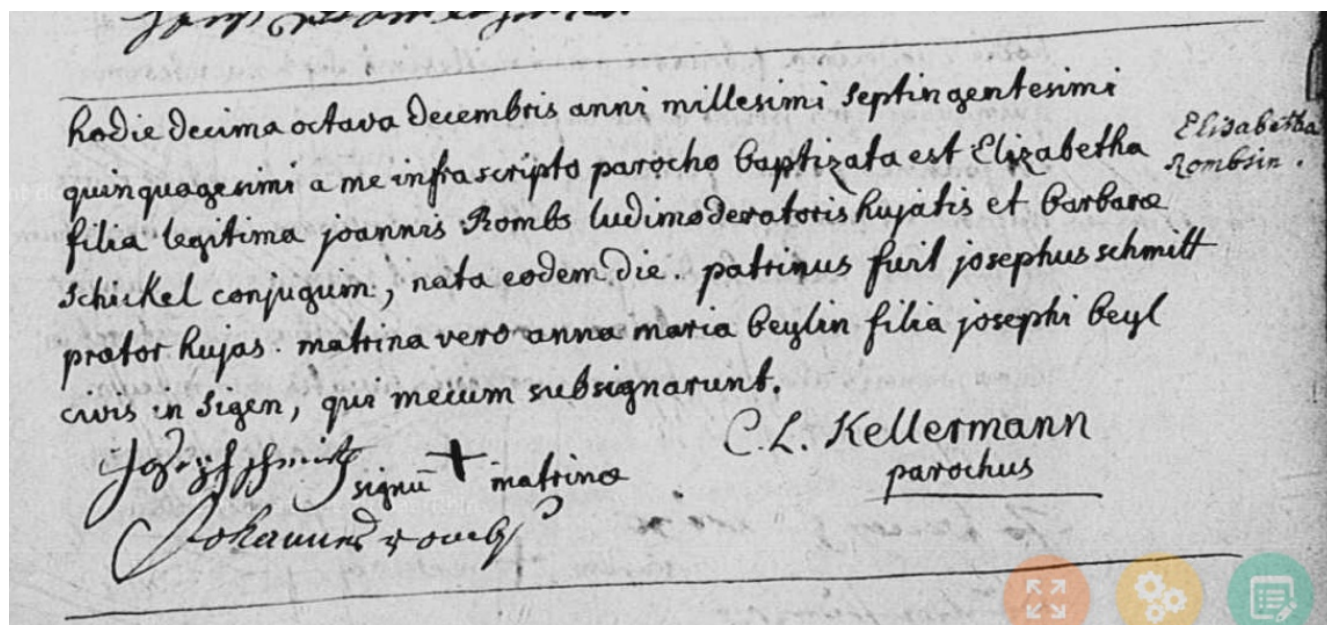 hodie decima octava decembris anni millesimi septingentesimi
quinquagesimi a me infrascripto parocho baptizata est Elizabetha
filia legitima joannis Rombs ludimoderatoris hujatis et barbaræ
schickel conjugum, nata eodem die. patrinus fuit josephus schmitt
prætor hujas. matrina vero anna maria beylin filia josephi beyl
civis in sigen, qui mecum subsignarunt.
Elisabetha
Rombsin.
C. L. Kellermann
parochus
Joseph schmitt signũ + matrinæ
Johannes rombs